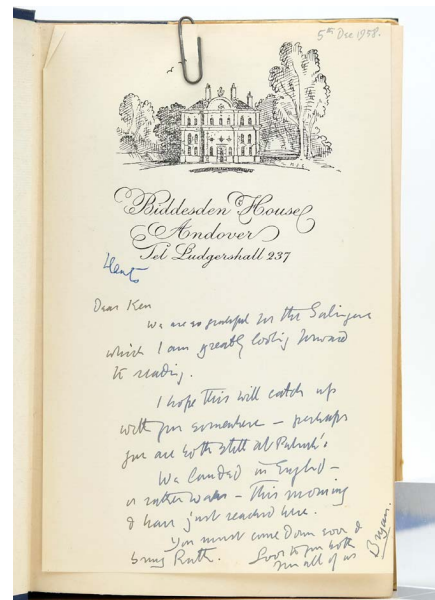 5th Dec 1958.
Biddesden House
Andover
Tel Ludgershall 237
Hants
Dear Ken
We are so grateful for the Salinger
which I am greatly looking forward
to reading.
I hope this will catch up
with you somewhere – perhaps
you are both still at Patrick's
We landed in England –
or rather Wales – this morning
& have just reached here.
You must come down soon &
bring Ruth. Love to you both
from all of us
Bryan.